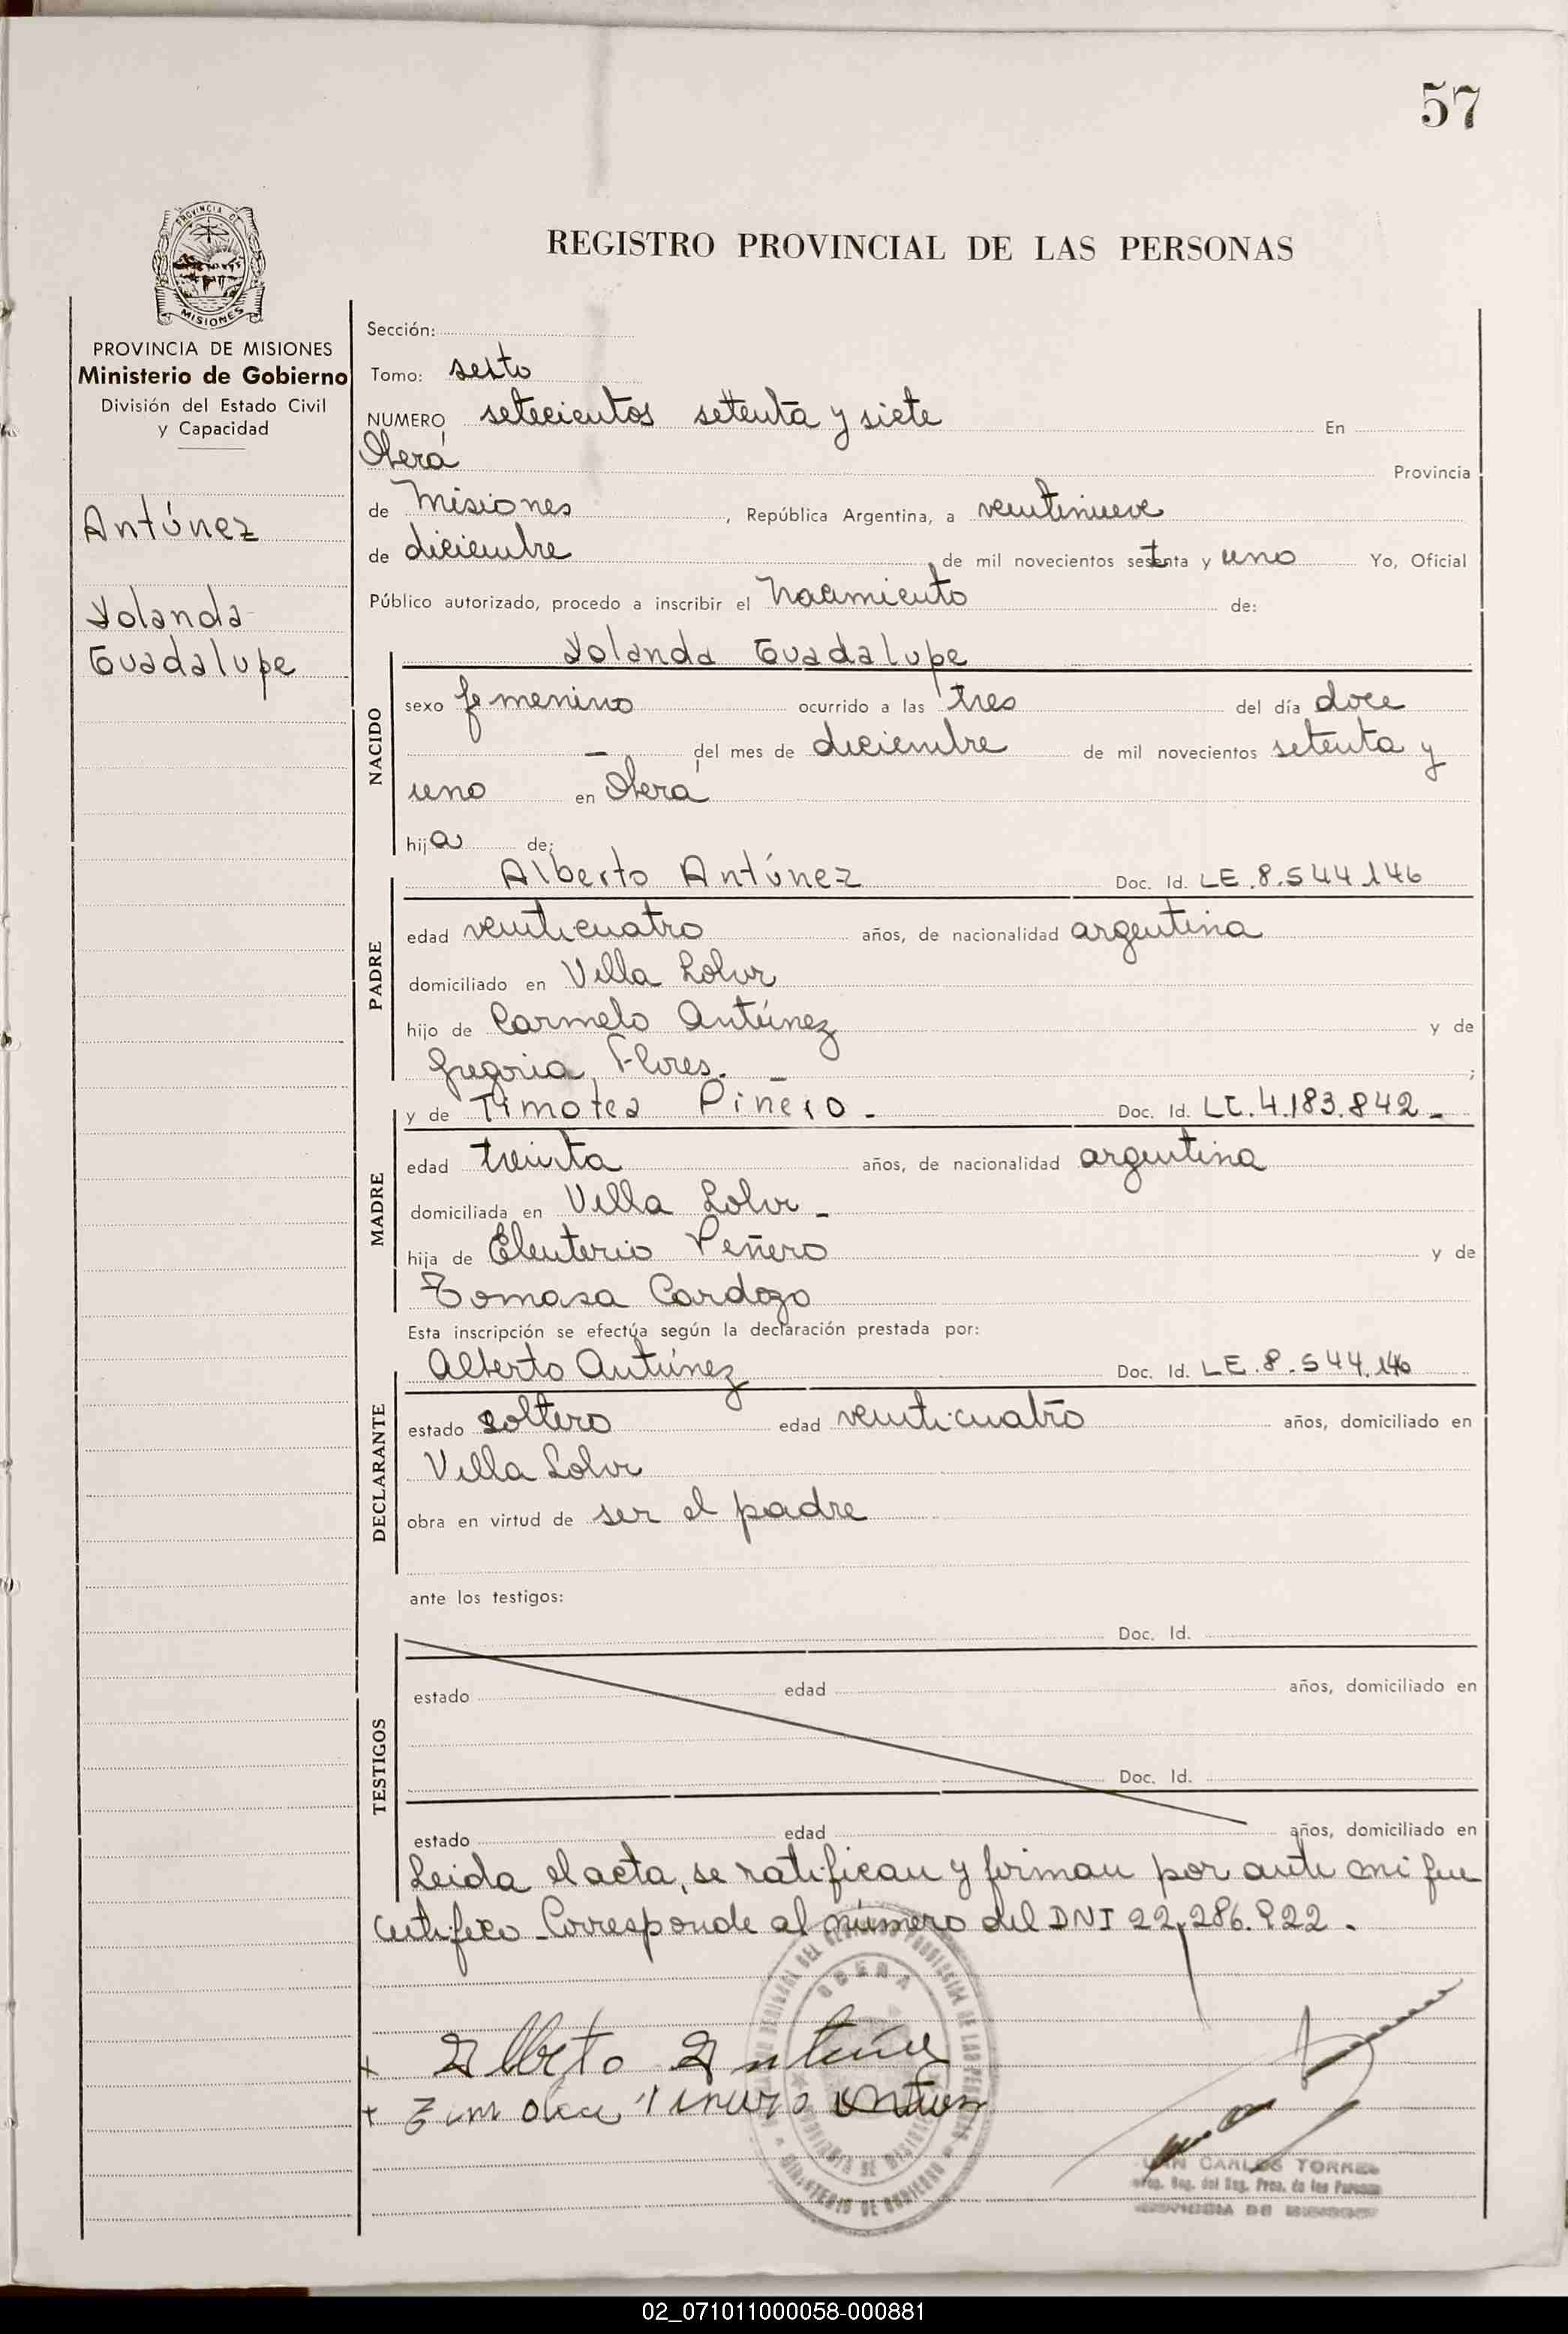 57
REGISTRO PROVINCIAL DE LAS PERSONAS
PROVINCIA DE
MISIONES
PROVINCIA DE MISIONES
Ministerio de Gobierno
División del Estado Civil
y Capacidad
Antúnez
Yolanda
Guadalupe
Sección:
Tomo: sexto
NUMERO setecientos setenta y siete En
Oberá Provincia
de Misiones, República Argentina, a veintinueve
de diciembre de mil novecientos setenta y uno Yo, Oficial
Público autorizado, procedo a inscribir el nacimiento de:
NACIDO
Yolanda Guadalupe
sexo femenino ocurrido a las tres del día doce
— del mes de diciembre de mil novecientos setenta y
uno en Oberá
hija de:
PADRE
Alberto Antúnez Doc. Id. LE.8.544.146
edad veinticuatro años, de nacionalidad argentina
domiciliado en Villa
hijo de Carmelo Antúnez y de
Gregoria Flores. — ;
MADRE
y de Timotea Piñero. - Doc. Id. LC.4.183.842_
edad treinta años, de nacionalidad argentina
domiciliada en Villa
hija de Eleuterio Peñero y de
Tomasa Cardozo
Esta inscripción se efectúa según la declaración prestada por:
DECLARANTE
Alberto Antúnez Doc. Id. LE.8.544.146
estado soltero edad veinticuatro años, domiciliado en
Villa
obra en virtud de ser el padre
ante los testigos:
TESTIGOS
Doc. Id.
estado edad años, domiciliado en
Doc. Id.
estado edad años, domiciliado en
Leida el acta, se ratifican y firman por ante mi que
certifico_Corresponde al número del DNI 22.286.822.
OBERA
MINISTERIO DE GOBIERNO
+ Alberto Antunez
+
JUAN CARLOS TORRES
02_071011000058-000881